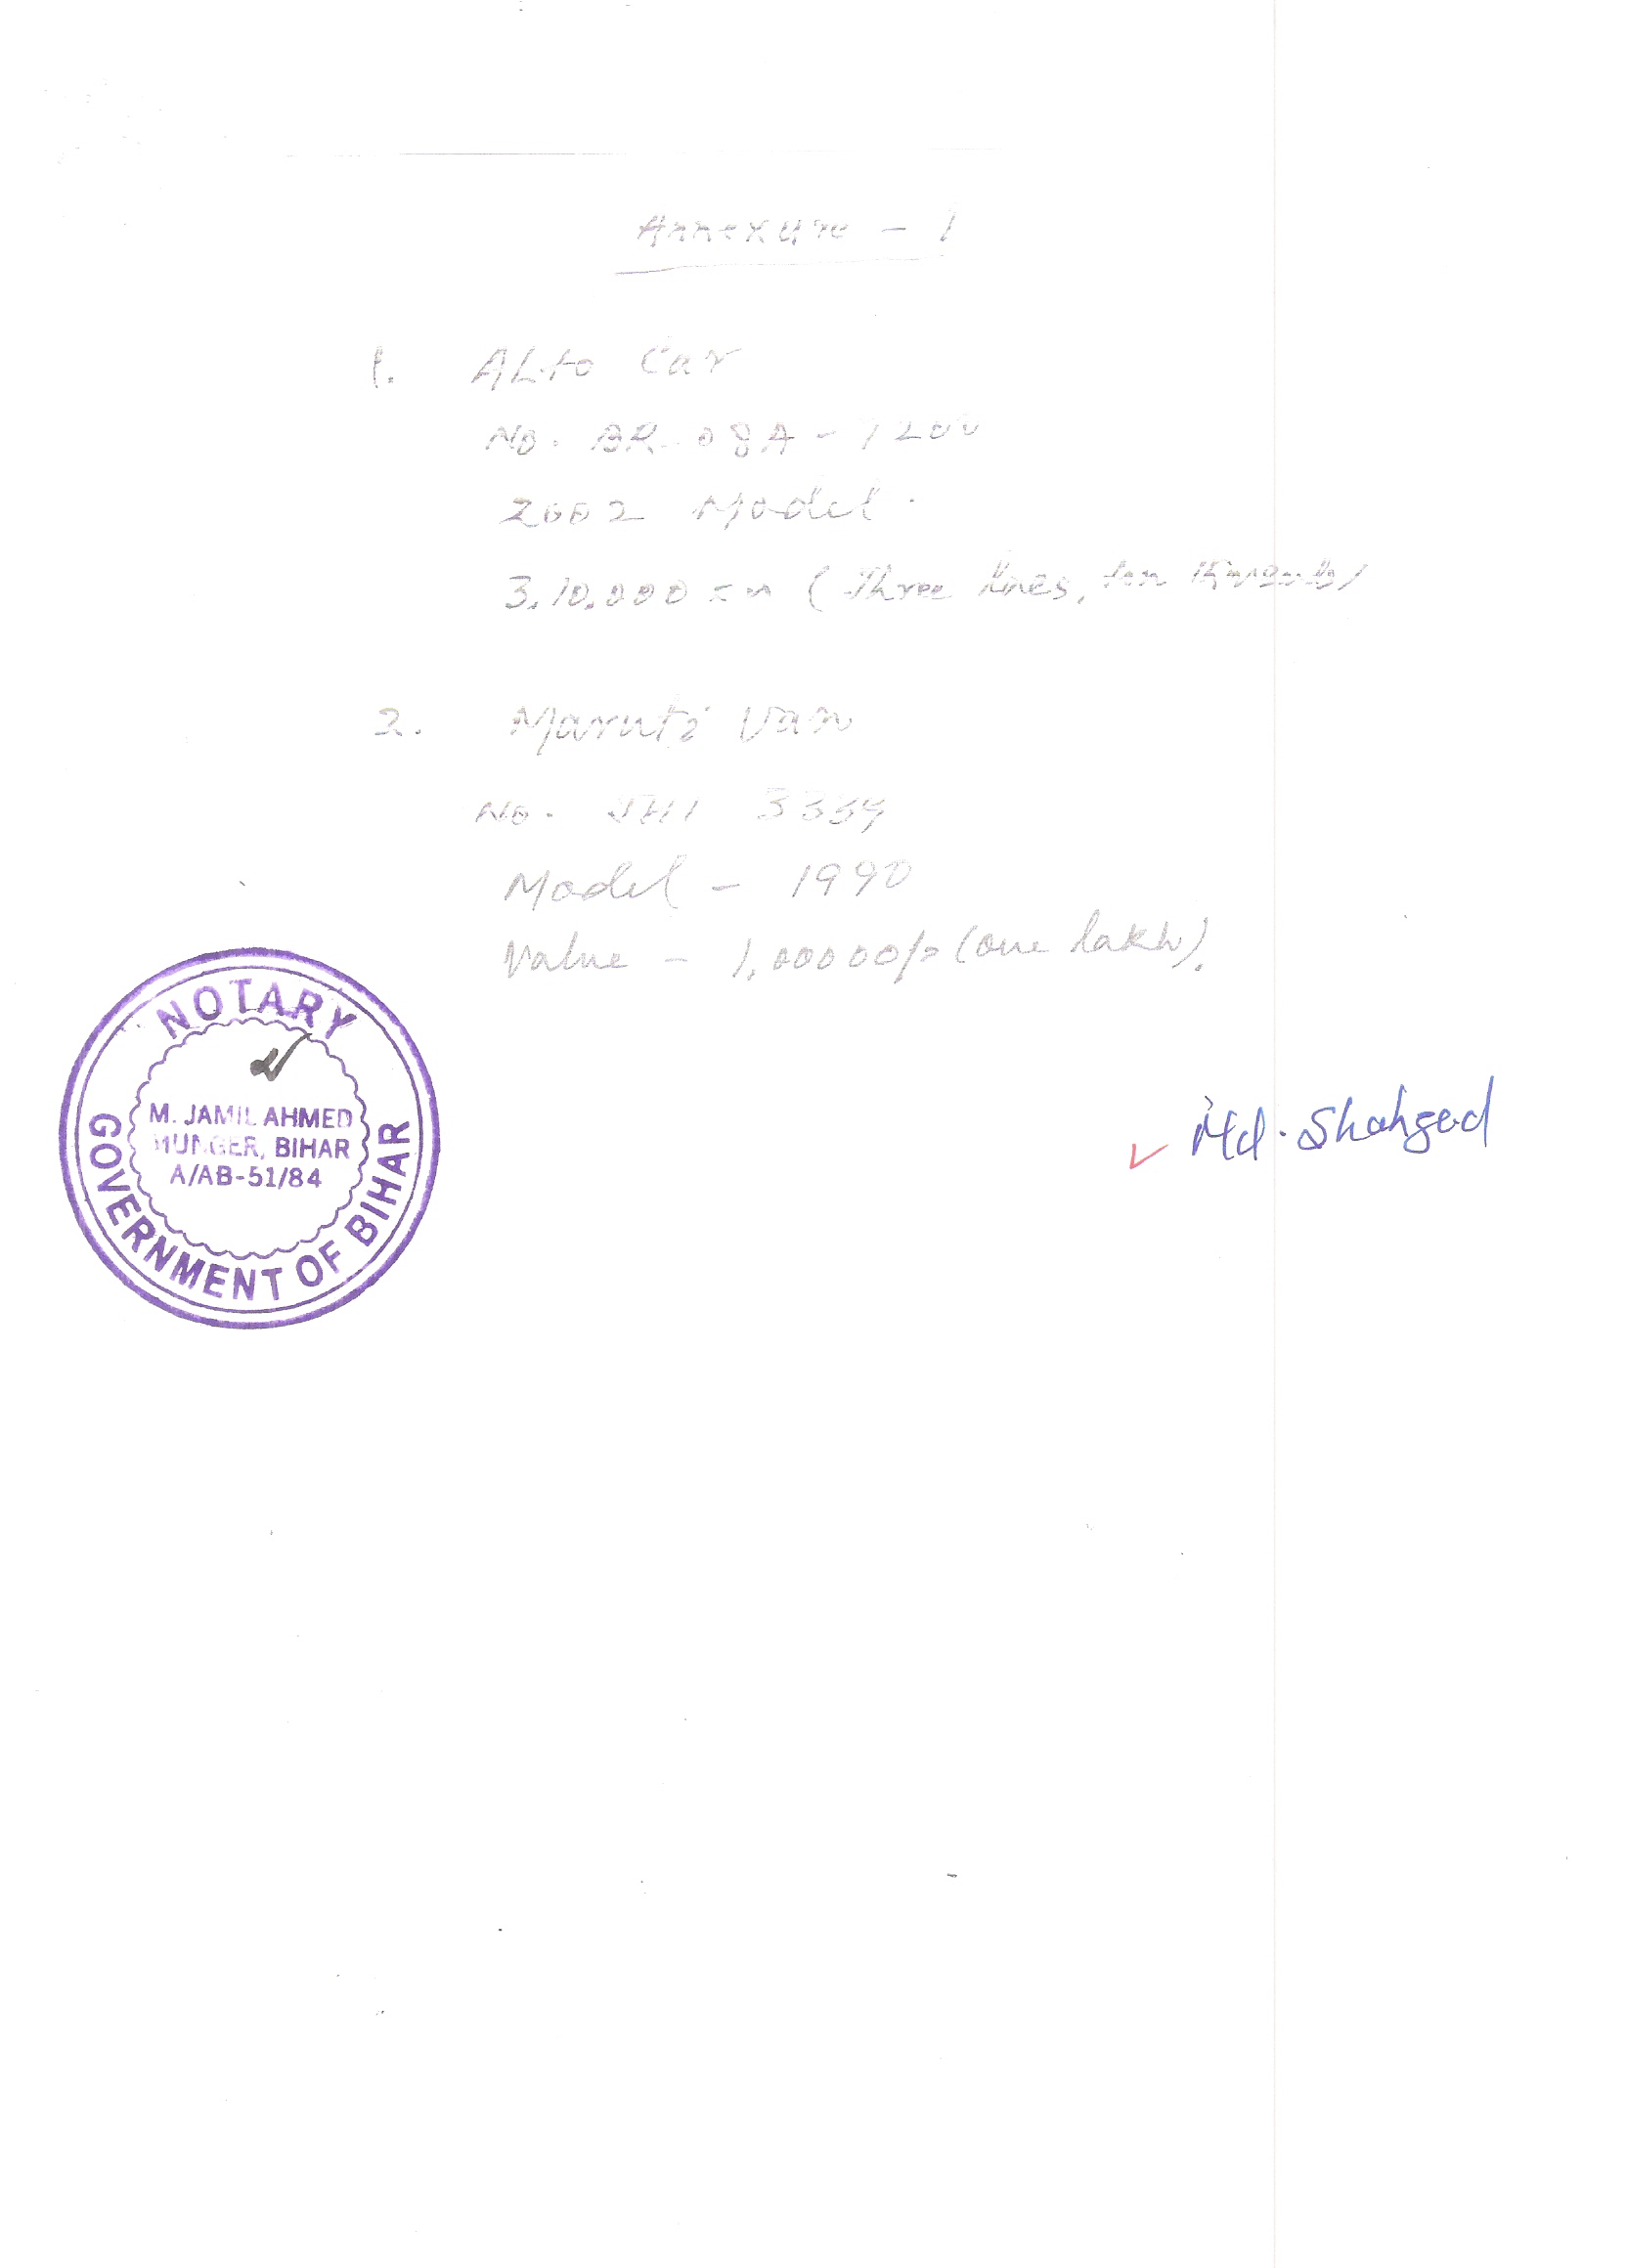 Annexure - 1
1. ALto Car
No. BR-08A-7200
2002 Model.
3,10,000 = n (Three lakhs, ten thousands)
2. Maruti Van
No. 3339
Model - 1990
Value - 1,00000/= (one lakh).
NOTARY
M. JAMIL AHMED
MUNGER, BIHAR
A/AB-51/84
GOVERNMENT OF BIHAR
Md. Shahzed